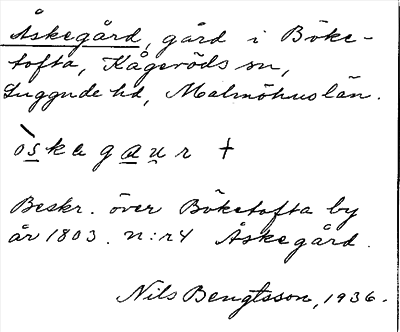 Åskegård, gård i Böke-
tofta, Kågeröds sn,
Luggude hd, Malmöhus län.
òskegaur †
Beskr. över Böketofta by
år 1803. n:r 4 Åskegård.
Nils Bengtsson, 1936.